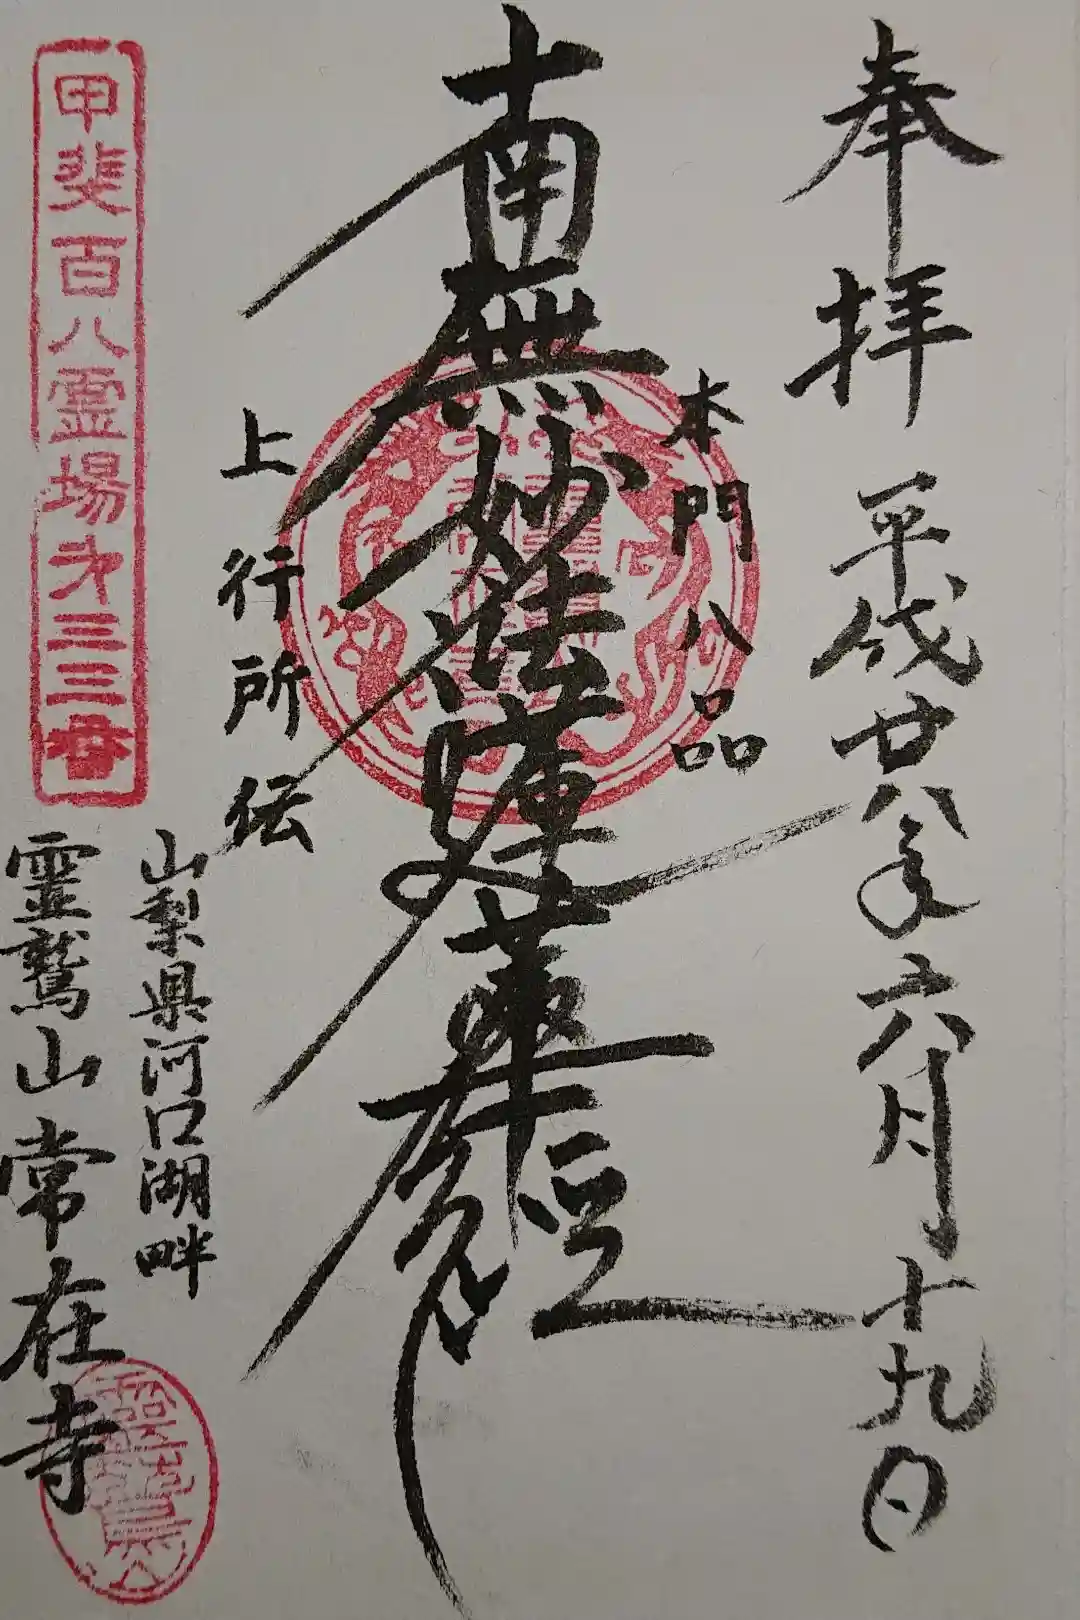 奉拝 平成廿八年六月十九日
本門八品
南無妙法蓮華経
上行所伝
山梨県河口湖畔
霊鷲山常在寺
甲斐百八霊場第三三番